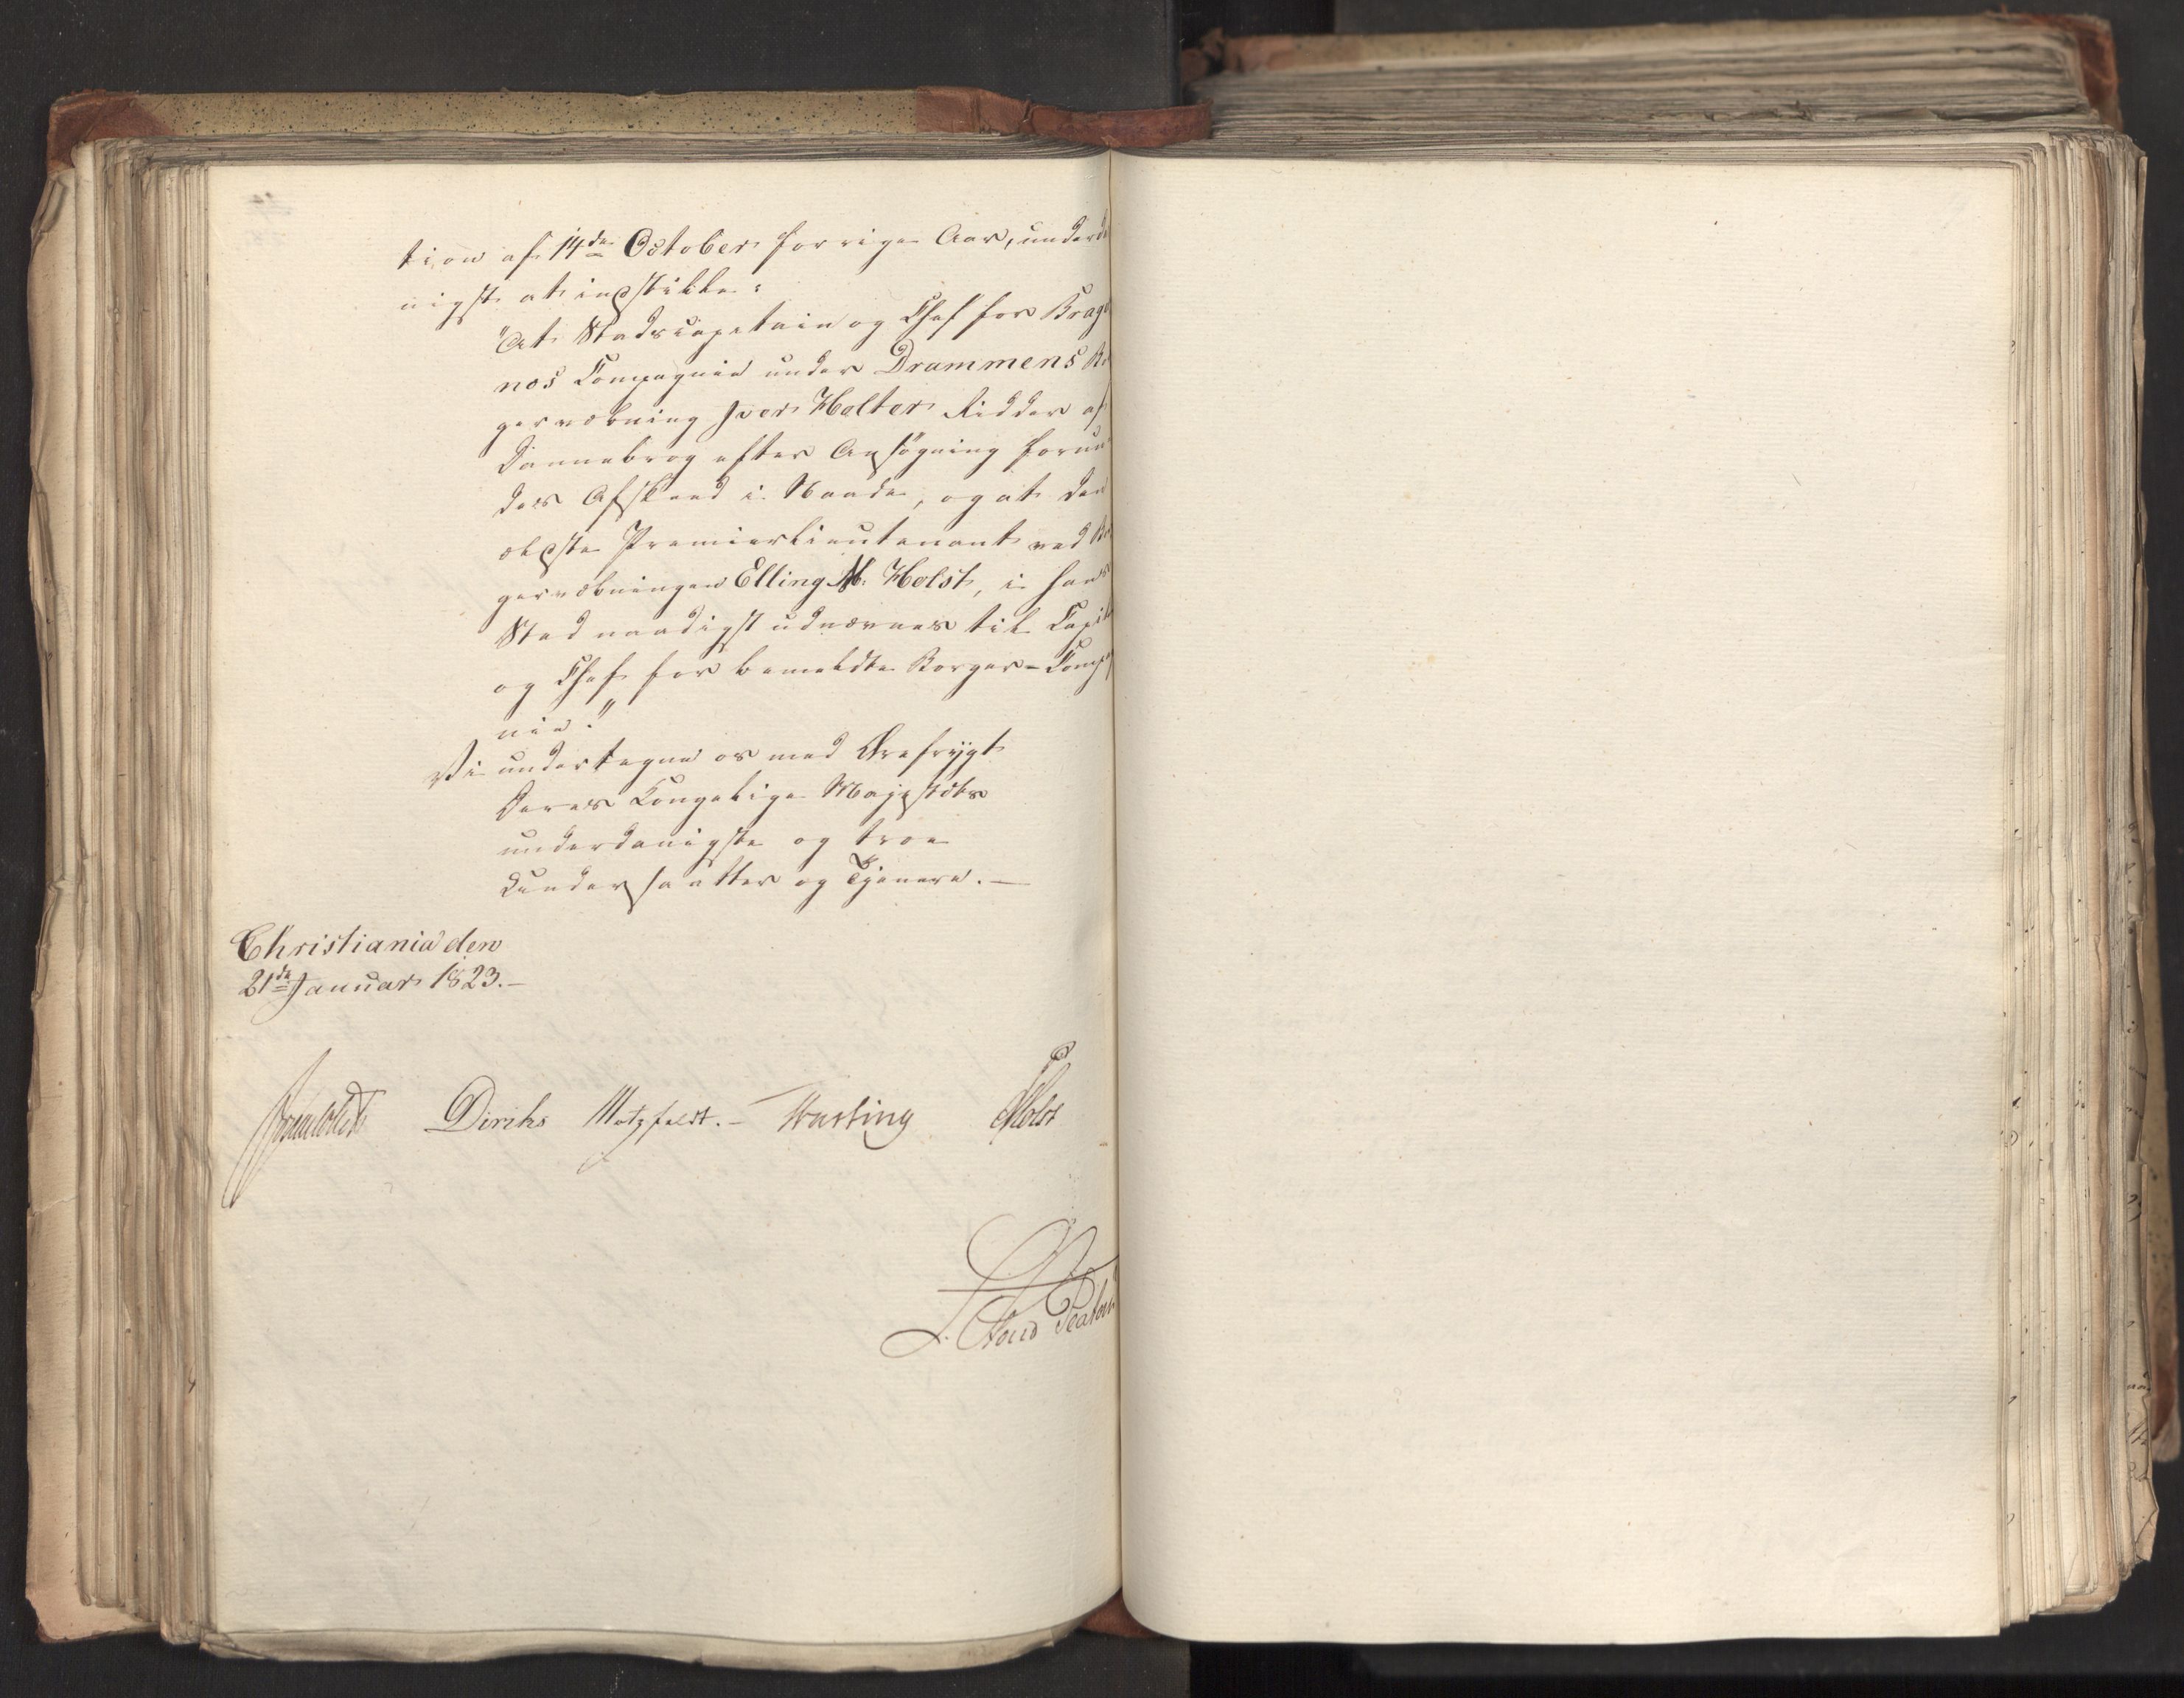 tion af 14de October forrige Aar, underda
nigst at indstille:
"At Stadscapitain og Chef for Brage
nos Compagnie under Drammens Bor
gervæbning Iver Holter Ridder af
Dannebrog efter Ansøgning forun
des Afskeed i Naade, og at den
ældste Premierlieutenant ved Bor
gervæbningen Elling M: Holst, i hans
Sted naadigst udnævnes til Capit
og Chef for bemeldte Borger-Compag
nie."
Vi undertegne os med Ærefrygt
Deres Kongelige Majestæts
underdanigste og troe
Undersaatter og Tjenere.—
Christiania den
21de Januar 1823.—
Diriks Motzfeldt.— Krefting Holst